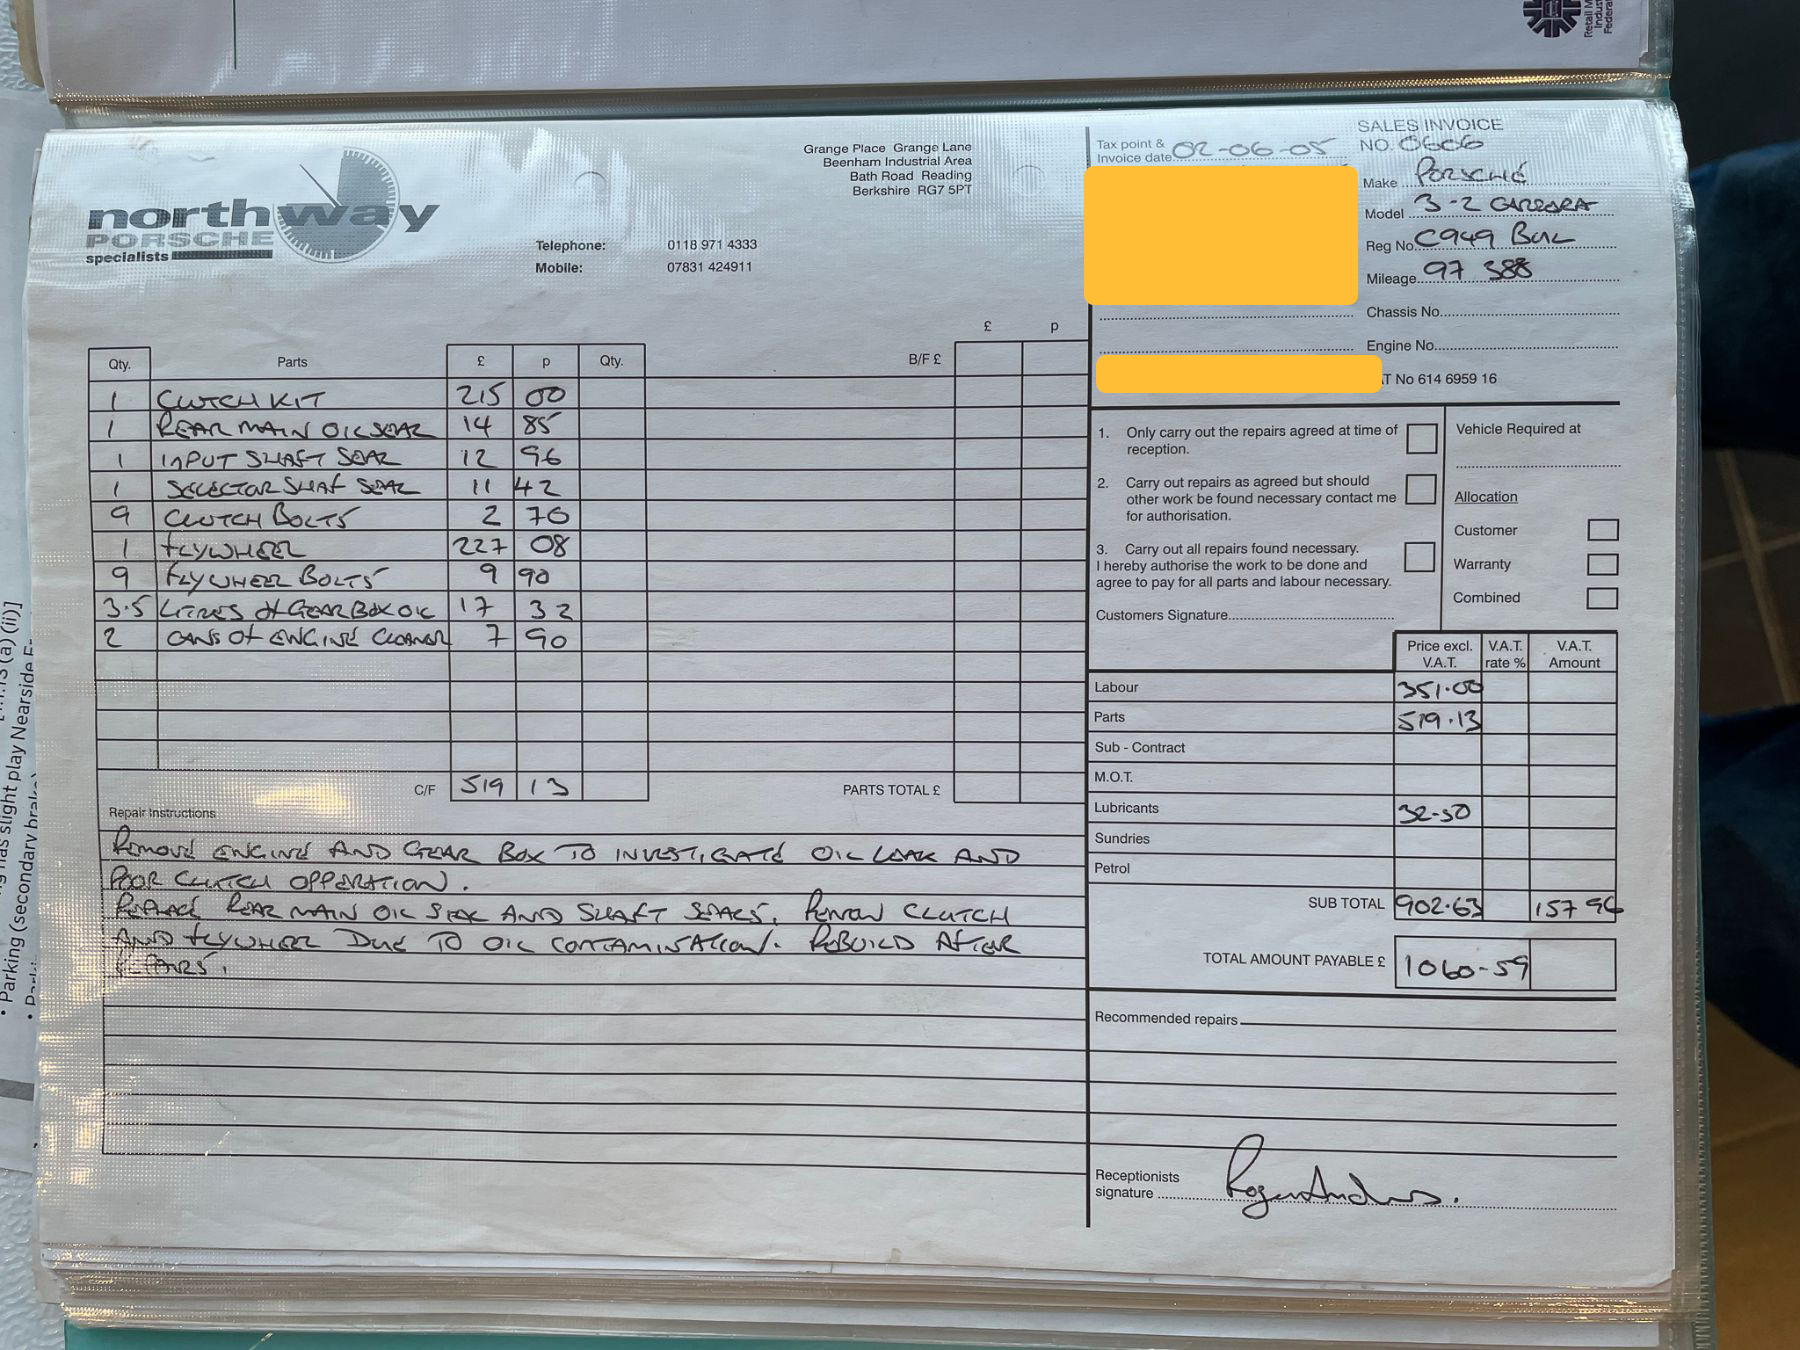 Retail M
Indus
Feder
north way
PORSCHE
specialists
Grange Place Grange Lane
Beenham Industrial Area
Bath Road Reading
Berkshire RG7 5PT
Telephone: 0118 971 4333
Mobile: 07831 424911
SALES INVOICE
Tax point &
Invoice date 02-06-05
NO. 0606
Make PORSCHE
Model 3-2 CARRERA
Reg No. C949 BUL
Mileage 97 388
Chassis No.
Engine No.
T No 614 6959 16
£ p
B/F £
Qty. Parts £ p Qty.
1 CLUTCH KIT 215 00
1 REAR MAIN OIL SEAL 14 85
1 INPUT SHAFT SEAL 12 96
1 SELECTOR SHAF SEAL 11 42
9 CLUTCH BOLTS 2 70
1 FLYWHEEL 227 08
9 FLYWHEEL BOLTS 9 90
3.5 LITRES of GEAR BOX OIL 17 32
2 CANS OF ENGINE CLEANER 7 90
C/F 519 13
PARTS TOTAL £
Repair Instructions
REMOVE ENGINE AND GEAR BOX TO INVESTIGATE OIL LEAK AND
POOR CLUTCH OPPERATION.
REPLACE REAR MAIN OIL SEAL AND SHAFT SEALS. RENEW CLUTCH
AND FLYWHEEL DUE TO OIL CONTAMINATION. REBUILD AFTER
REPAIRS.
1. Only carry out the repairs agreed at time of
reception.
2. Carry out repairs as agreed but should
other work be found necessary contact me
for authorisation.
3. Carry out all repairs found necessary.
I hereby authorise the work to be done and
agree to pay for all parts and labour necessary.
Customers Signature
Vehicle Required at
Allocation
Customer
Warranty
Combined
Price excl. V.A.T. V.A.T. rate % V.A.T. Amount
Labour 351.00
Parts 519.13
Sub - Contract
M.O.T.
Lubricants 32-50
Sundries
Petrol
SUB TOTAL 902.63 157 96
TOTAL AMOUNT PAYABLE £ 1060-59
Recommended repairs
Receptionists
signature
• Parking (secondary brake)
has slight play Nearside
(a) (ii)]